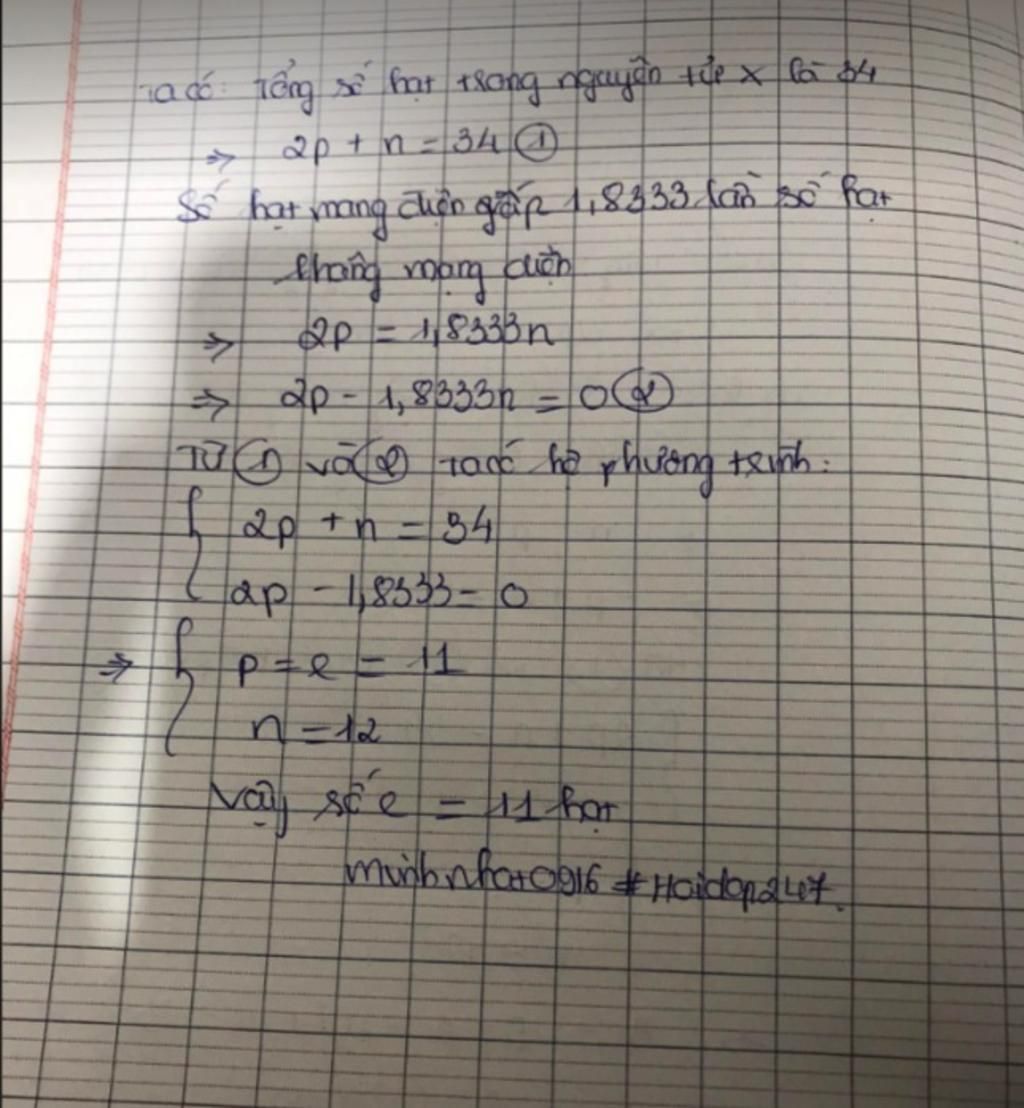 Ta có: Tổng số hạt trong nguyên tử x là 34
⇒ 2p + n = 34 ①
Số hạt mang điện gấp 1,8333 lần số hạt
không mang điện
⇒ 2p = 1,8333n
⇒ 2p - 1,8333n = 0 ②
Từ ① và ② ta có hệ phương trình:
{ 2p + n = 34
2p - 1,8333 = 0
⇒ { p = e = 11
n = 12
Vậy số e = 11 hạt
minhnhat0916 #Hoidap247.